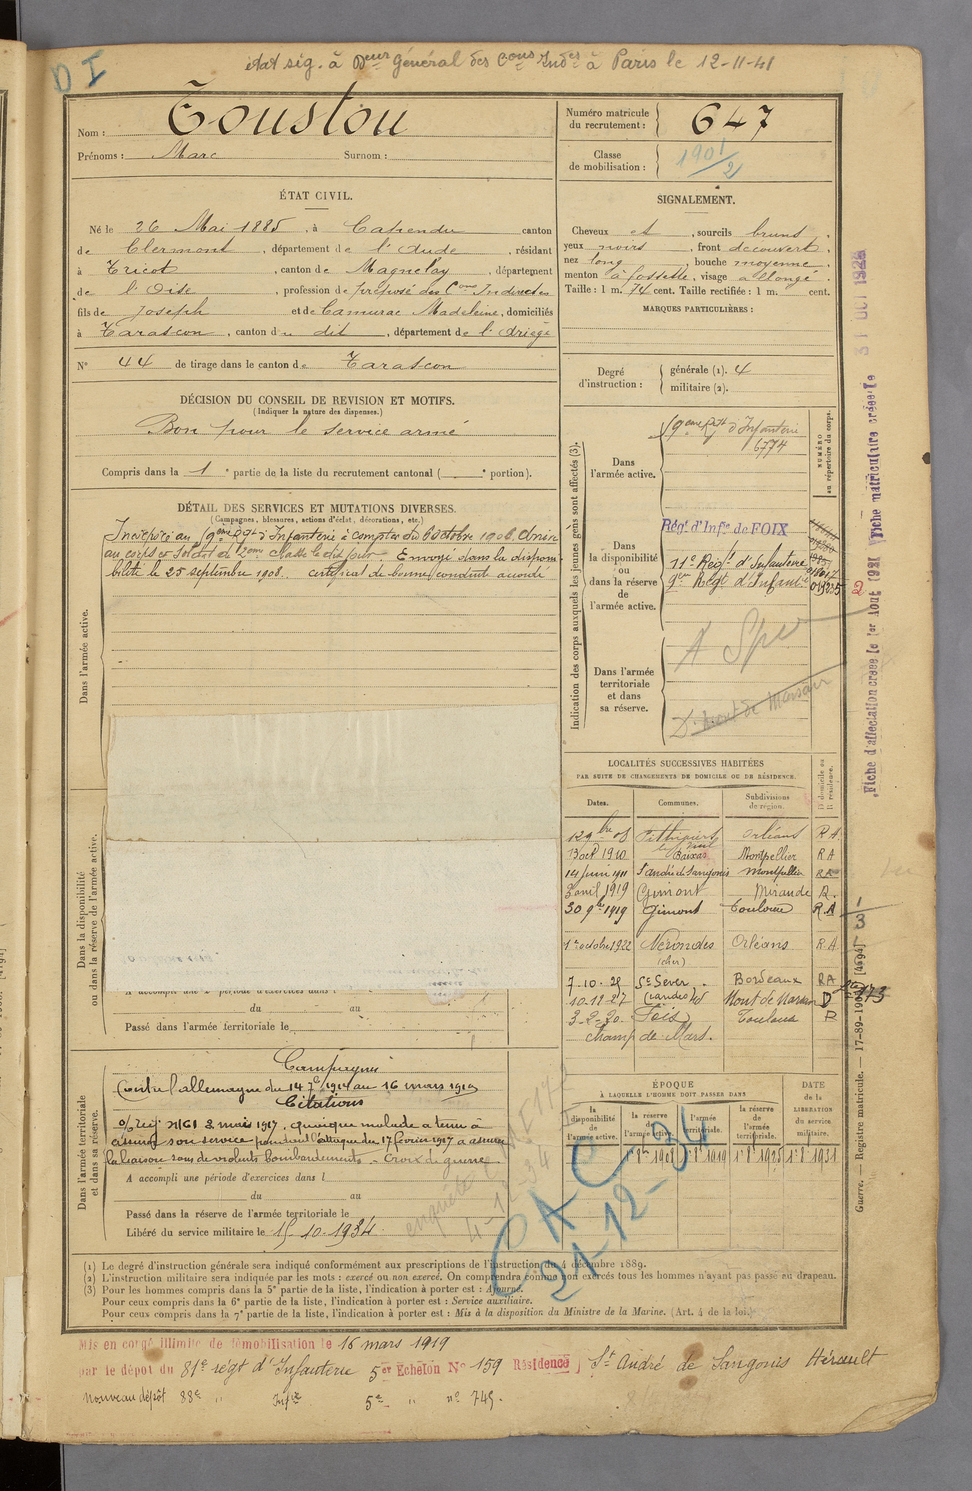 état sig. à Deur général des Cons Indes à Paris le 12-11-41
D I
Nom : Touston
Prénoms : Marc Surnom :
Numéro matricule du recrutement : 647
Classe de mobilisation : 1901/2
ÉTAT CIVIL.
Né le 26 Mai 1885, à Capendu canton
de Clermont, département de l'Aude, résidant
à Tricot, canton de Maignelay, département
de l'Oise, profession de préposé des Cons Indirectes
fils de Joseph et de Camurac Madeleine, domiciliés
à Tarascon, canton du dit, département de l'Ariège
N° 44 de tirage dans le canton de Tarascon
SIGNALEMENT.
Cheveux et, sourcils bruns,
yeux noirs, front découvert,
nez long, bouche moyenne,
menton à fossette, visage allongé.
Taille : 1 m. 74 cent. Taille rectifiée : 1 m. cent.
MARQUES PARTICULIÈRES :
Degré d'instruction :
générale (1). 4
militaire (2).
DÉCISION DU CONSEIL DE REVISION ET MOTIFS.
(Indiquer la nature des dispenses.)
Bon pour le service armé
Compris dans la 1e partie de la liste du recrutement cantonal ( e portion).
DÉTAIL DES SERVICES ET MUTATIONS DIVERSES.
(Campagnes, blessures, actions d'éclat, décorations, etc.)
Incorporé au 9eme Rgt d'Infanterie à compter du 6 octobre 1906. Arrivé
au corps et soldat de 2eme classe le dit jour. Envoyé dans la disponi-
bilité le 25 septembre 1908. certificat de bonne conduite accordé
Dans l'armée active.
Dans la disponibilité
ou dans la réserve de l'armée active.
A accompli une 2e période d'exercices dans l
du au
Passé dans l'armée territoriale le
Dans l'armée territoriale
et dans sa réserve.
Campagnes
Contre l'allemagne du 14 7e 1914 au 16 mars 1919
Citations
o/reg. N161 2 mars 1917. quoique malade a tenu à
assurer son service pendant l'attaque du 17 février 1917 a assuré
la liaison sous de violents bombardements - Croix de guerre
A accompli une période d'exercices dans l
du au
Passé dans la réserve de l'armée territoriale le
Libéré du service militaire le 15-10-1934.
Indication des corps auxquels les jeunes gens sont affectés (3).
NUMÉRO
au répertoire du corps.
Dans
l'armée active.
9eme Rgt d'Infanterie
6774
Dans
la disponibilité
ou
dans la réserve
de
l'armée active.
Régt d'Infie de FOIX
11e Regt d'Infanterie
9er Regt d'Infantie
2
Dans l'armée
territoriale
et dans
sa réserve.
D. Mont de Marsan
LOCALITÉS SUCCESSIVES HABITÉES
PAR SUITE DE CHANGEMENTS DE DOMICILE OU DE RÉSIDENCE.
Dates. Communes. Subdivisions de région. D domicile ou R résidence.
12 9bre 08 Pithiviers Orléans R A
13 oct 1910 Baixas Montpellier R A
14 juin 1911 St André de Sangonis Montpellier R A
7 avril 1919 Gimont Mirande R.
30 9bre 1919 Gimont Toulouse R. A
1er octobre 1922 Nérondes Orléans R A
(cher)
7-10-25 St Sever Bordeaux R A
10-12-27 (Landes) Mont de Marsan D
3-2-30 Foix Toulouse D
champ de Mars.
1/3
ÉPOQUE
À LAQUELLE L'HOMME DOIT PASSER DANS
la disponibilité de l'armée active.
la réserve de l'armée active.
l'armée territoriale.
la réserve de l'armée territoriale.
DATE
DE LA
LIBÉRATION
du service
militaire.
1er 8bre 1908 1er 8e 1919 1er 8e 1925 1er 8e 1931
C A C
21-12-34
enquête
4-12-34
(1) Le degré d'instruction générale sera indiqué conformément aux prescriptions de l'instruction du 4 décembre 1889.
(2) L'instruction militaire sera indiquée par les mots : exercé ou non exercé. On comprendra comme non exercés tous les hommes n'ayant pas passé au drapeau.
(3) Pour les hommes compris dans la 5e partie de la liste, l'indication à porter est : Ajourné.
Pour ceux compris dans la 6e partie de la liste, l'indication à porter est : Service auxiliaire.
Pour ceux compris dans la 7e partie de la liste, l'indication à porter est : Mis à la disposition du Ministre de la Marine. (Art. 4 de la loi.)
Mis en congé illimité de démobilisation le 16 mars 1919
par le dépôt du 81e régt d'Infanterie 5er Echelon N° 159 Résidence St André de Sangonis Hérault
Nouveau dépôt 88e " Infie 5e " n° 745.
Fiche d'affectation créée le 1er Aout 1921 Fiche matriculaire créée le 31 OCT 1928
Guerre. — Registre matricule. — 17-89-190 [4194]